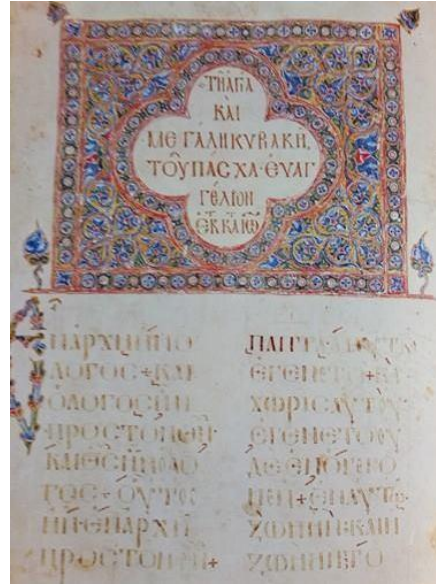 ΤΗ ΑΓΙΑ
ΚΑΙ
ΜΕΓΑΛΗ ΚΥΡΙΑΚΗ,
ΤΟΥ ΠΑΣΧΑ·ΕΥΑΓ
ΓΕΛΙΟΝ
ΕΚ
ΕΝ ΑΡΧΗ ΗΝ Ο
ΛΟΓΟC+ΚΑΙ
Ο ΛΟΓΟC ΗΝ
ΠΡΟC ΤΟΝ ΘΝ·
ΚΑΙ ΘC ΗΝ Ο ΛΟ
ΓΟC+ΟΥΤΟC
ΗΝ ΕΝ ΑΡΧΗ
ΠΡΟC ΤΟΝ ΘΝ+
ΠΑΝΤΑ ΔΙ ΑΥΤΟΥ
ΕΓΕΝΕΤΟ+ΚΑΙ
ΧΩΡΙC ΑΥΤΟΥ
ΕΓΕΝΕΤΟ ΟΥ
ΔΕ ΕΝ Ο ΓΕΓΟ
ΝΕΝ+ΕΝ ΑΥΤΩ
ΖΩΗ ΗΝ ΚΑΙ Η
ΖΩΗ ΗΝ ΤΟ